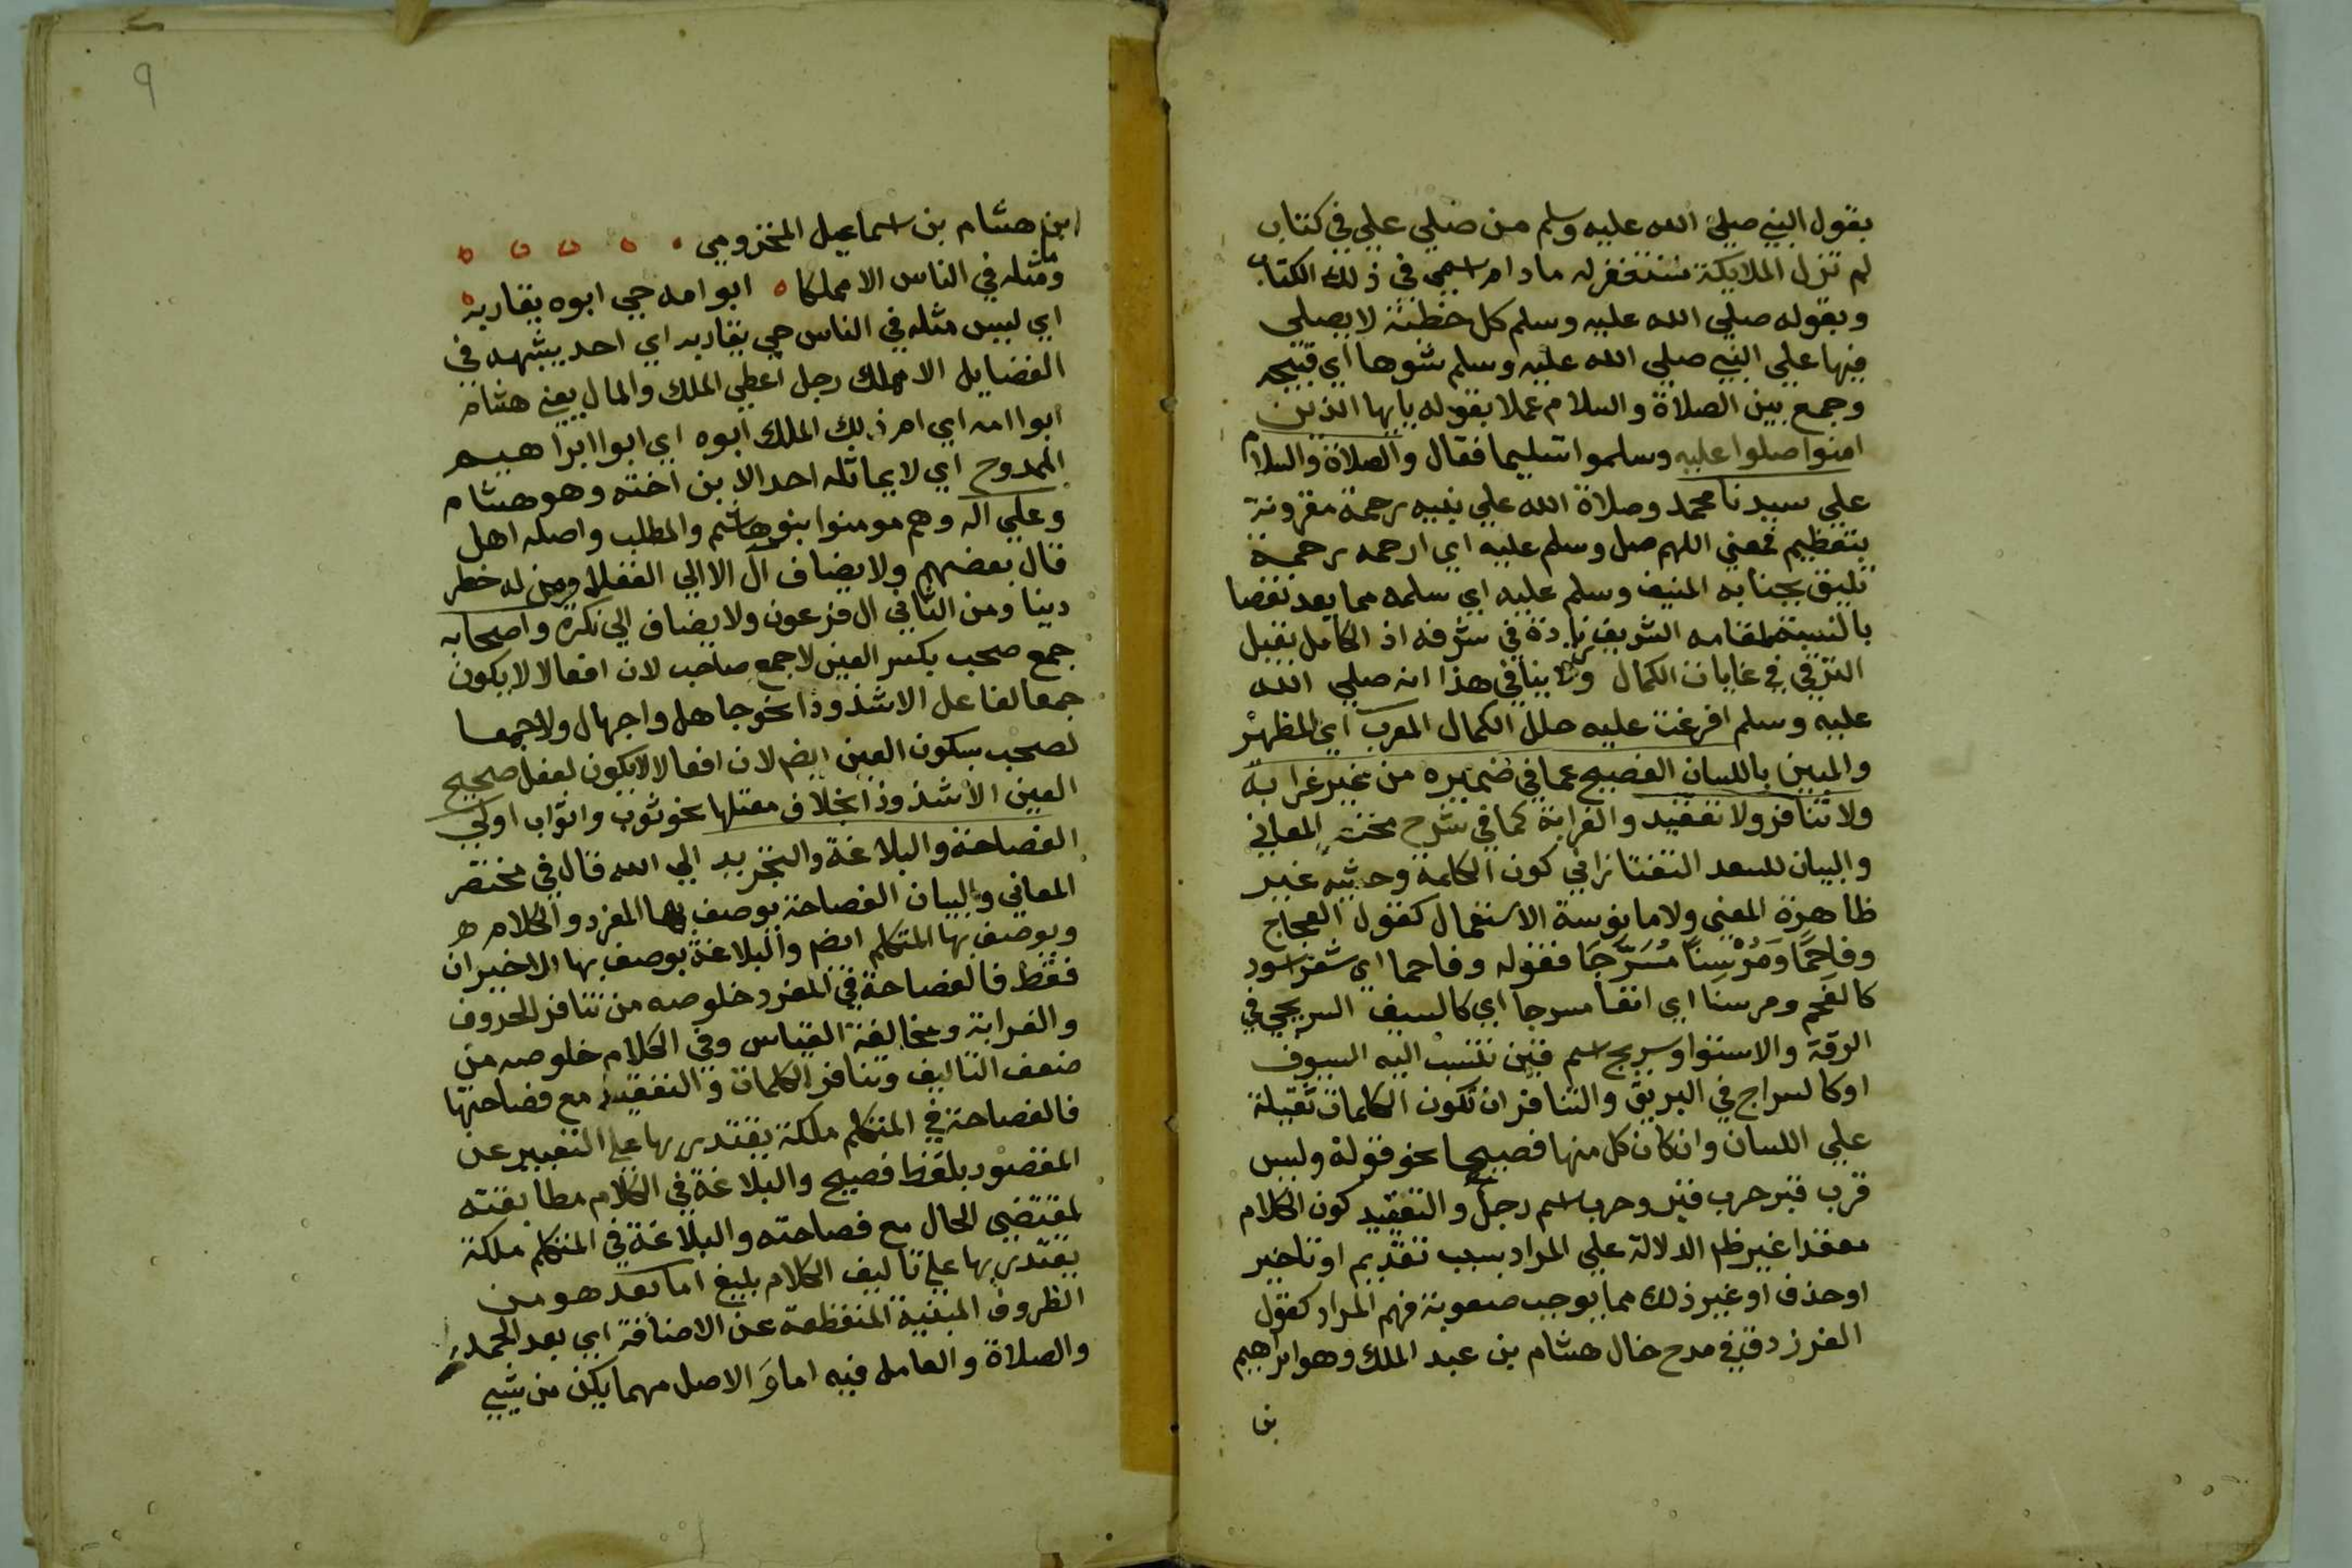 بقول النبي صلي الله عليه وسلم من صلي علي في كتاب
لم تزل الملايكة تستغفر له ما دام اسمي في ذلك الكتاب
وبقوله صلي الله عليه وسلم كل خطبة لا يصلي
فيها علي النبي صلي الله عليه وسلم شوها اي قبيحه
وجمع بين الصلاة والسلام عملا بقوله يايها الذين
امنوا صلوا عليه وسلموا تسليما فقال والصلاة والسلام
علي سيدنا محمد وصلاة الله علي نبيه رحمة مقرونة
بتعظيم فمعني اللهم صل وسلم عليه اي ارحمه رحمة
تليق بجنابه المنيف وسلم عليه اي سلمه مما يعد نقصا
بالنسبة لمقامه الشريف زيادة في شرفه اذ الكامل يقبل
الترقي في غايات الكمال ولا ينافي هذا انه صلي الله
عليه وسلم افرغت عليه حلل الكمال المعرب اي المظهر
والمبين باللسان الفصيح عما في ضميره من غير غرابة
ولا تنافر ولا تعقيد والغرابة كما في شرح مختصر المعاني
والبيان للسعد التفتازاني كون الكلمة وحشية غير
ظاهرة المعني ولا مانوسة الاستعمال كقول العجاج
وفاحمًا ومَرْسِنًا مُسَرَّجَا فقوله وفاحما اي شعر اسود
كالفحم ومرسنا اي انفا مسرجا اي كالسيف السريجي في
الدقة والاستوا وسريج اسم قين تنسب اليه السيوف
او كالسراج في البريق والتنافر ان تكون الكلمات ثقيلة
علي اللسان وان كان كل منها فصيحا نحو قوله وليس
قرب قبر حرب قبر وحرب اسم رجل والتعقيد كون الكلام
معقدا غير ظم الدلالة علي المراد بسبب تقديم او تاخير
او حذف او غير ذلك مما يوجب صعوبة فهم المراد كقول
الفرزدق في مدح خال هشام بن عبد الملك وهو ابراهيم
بن
٩
ابن هشام بن اسماعيل المخزومي
ومثله في الناس الا مملكا ه ابو امه حي ابوه يقاربه
اي ليس مثله في الناس حي يقاربه اي احد يشبهه في
الفضايل الا مملك رجل اعطي الملك والمال يعني هشام
ابوا امه اي ام ذلك الملك ابوه اي ابوا ابراهيم
الممدوح اي لا يماثله احد الا بن اخته وهو هشام
وعلي اله وهم مومنوا بنو هاشم والمطلب واصله اهل
قال بعضهم ولا يضاف ال الا الي العقلا ومن له خطر
دينا ومن الثاني ال فرعون ولا يضاف الي نكرة واصحابه
جمع صحب بكسر العين لا جمع صاحب لان افعالا لا يكون
جمعا لفاعل الا شذوذا نحو جاهل واجهال ولا جمعا
لصحب بسكون العين ايضم لان افعالا لا يكون لفعل صحيح
العين الا شذوذا بخلاف معتلها نحو ثوب واثواب اولي
الفصاحة والبلاغة والتجريد الي الله قال في مختصر
المعاني والبيان الفصاحة يوصف بها المفرد والكلام
ويوصف بها المتكلم ايضم والبلاغة يوصف بها الاخيران
فقط فالفصاحة في المفرد خلوصه من تنافر الحروف
والغرابة ومخالفة القياس وفي الكلام خلوصه من
ضعف التاليف وتنافر الكلمات والتعقيد مع فصاحتها
فالفصاحة في المتكلم ملكة يقتدر بها علي التعبير عن
المقصود بلفظ فصيح والبلاغة في الكلام مطابقته
لمقتضي الحال مع فصاحته والبلاغة في المتكلم ملكة
يقتدر بها علي تاليف الكلام بليغ اما بعد هو من
الظروف المبنية المنقطعة عن الاضافة اي بعد الحمدلة
والصلاة والعامل فيه اما و الاصل مهما يكن من شيي